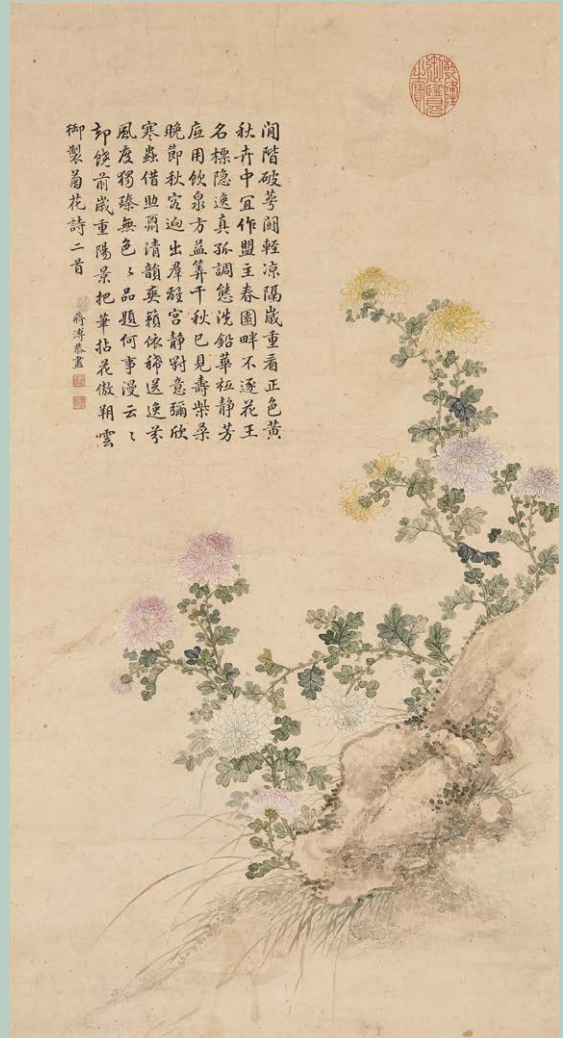 閒階破萼闘輕凉隔歲重看正色黃
秋卉中宜作盟主春園畔不逐花王
名標隐逸真孤調態洗鉛華祗静芳
应用飲泉方益筭千秋已見壽柴桑
晚節秋容迥出羣離宫静對意彌欣
寒蟲借照清韻爽籟依稀送逸芬
風度獨臻無色〻品題何事漫云〻
却饒前歲重陽景把筆拈花傲朔雲
御製菊花詩二首
蔣溥恭畫